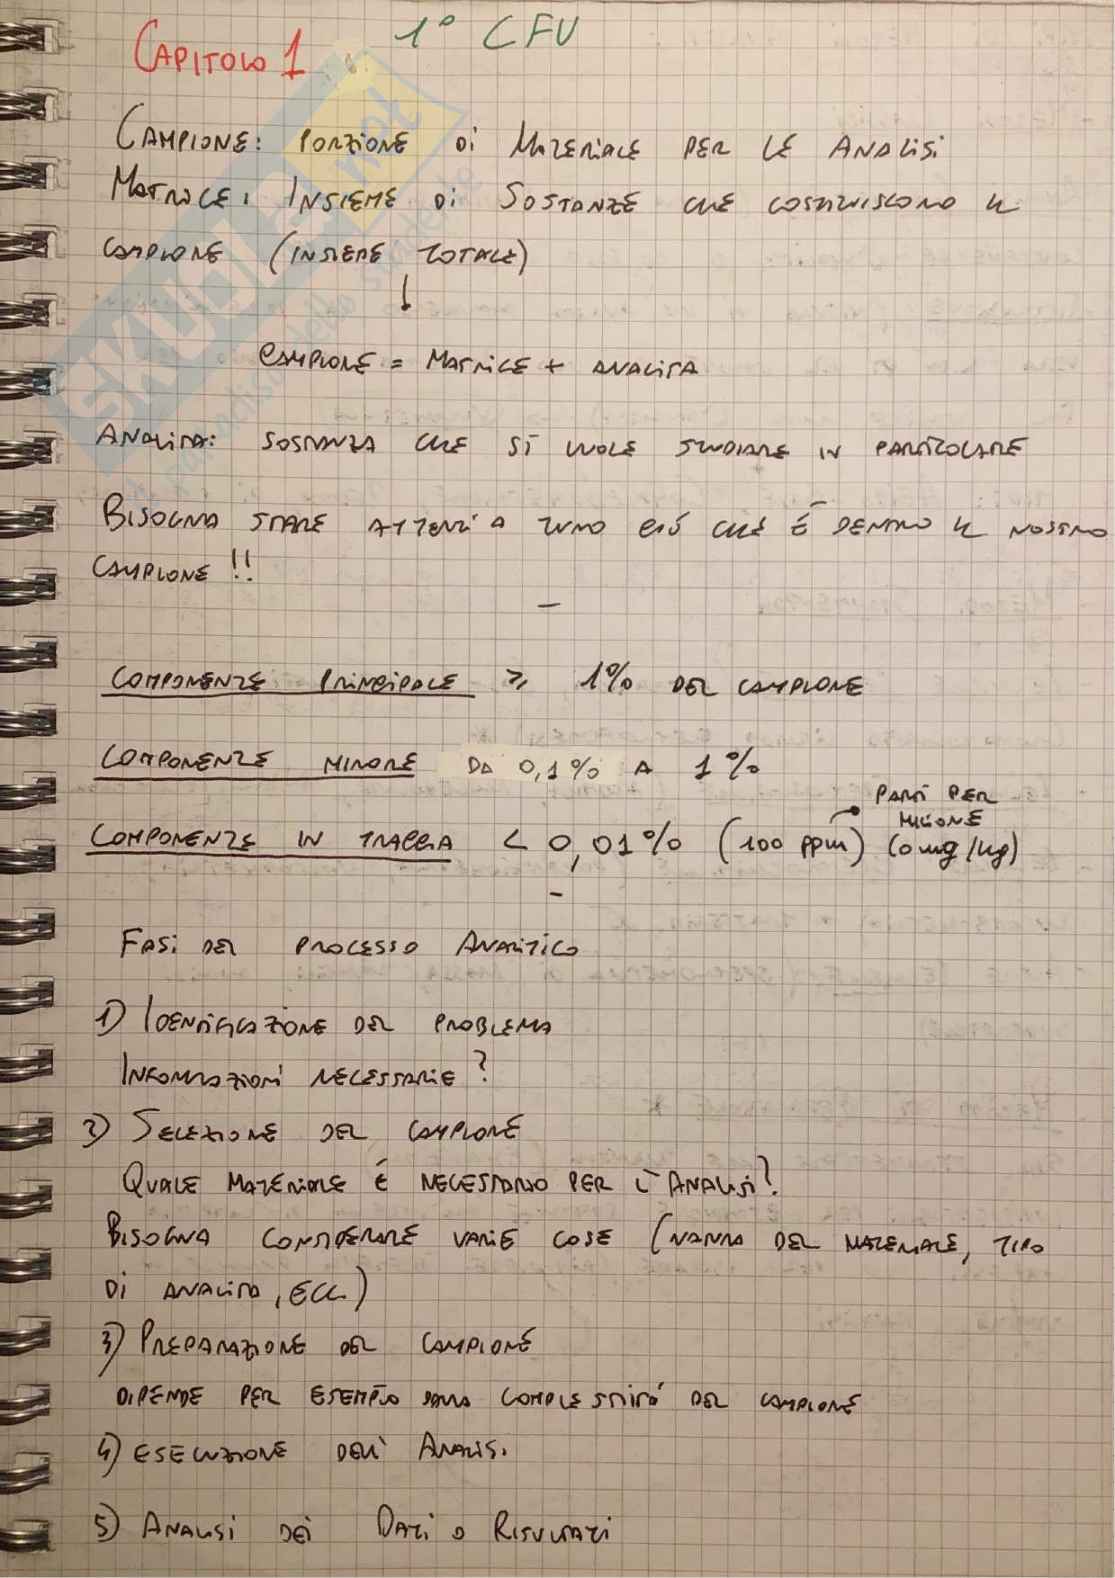 CAPITOLO 1 1° CFU
CAMPIONE: PORZIONE DI MATERIALE PER LE ANALISI
MATRICE: INSIEME DI SOSTANZE CHE COSTITUISCONO IL
CAMPIONE (INSIEME TOTALE)
↓
CAMPIONE = MATRICE + ANALITA
ANALITA: SOSTANZA CHE SI VUOLE STUDIARE IN PARTICOLARE
BISOGNA STARE ATTENTI A TUTTO CIÓ CHE É DENTRO IL NOSTRO
CAMPIONE !!
–
COMPONENTE PRINCIPALE ⩾ 1% DEL CAMPIONE
COMPONENTE MINORE DA 0,1% A 1%
PARTI PER
MILIONE
COMPONENTE IN TRACCIA < 0,01% (100 ppm) (o mg/kg)
–
FASI DEL PROCESSO ANALITICO
1) IDENTIFICAZIONE DEL PROBLEMA
INFORMAZIONI NECESSARIE?
2) SELEZIONE DEL CAMPIONE
QUALE MATERIALE É NECESSARIO PER L'ANALISI?
BISOGNA CONSIDERARE VARIE COSE (NATURA DEL MATERIALE, TIPO
DI ANALITA, ECC.)
3) PREPARAZIONE DEL CAMPIONE
DIPENDE PER ESEMPIO DALLA COMPLESSITÁ DEL CAMPIONE
4) ESECUZIONE DELL'ANALISI
5) ANALISI DEI DATI O RISULTATI
SKUOLA.net
il paradiso dello studente